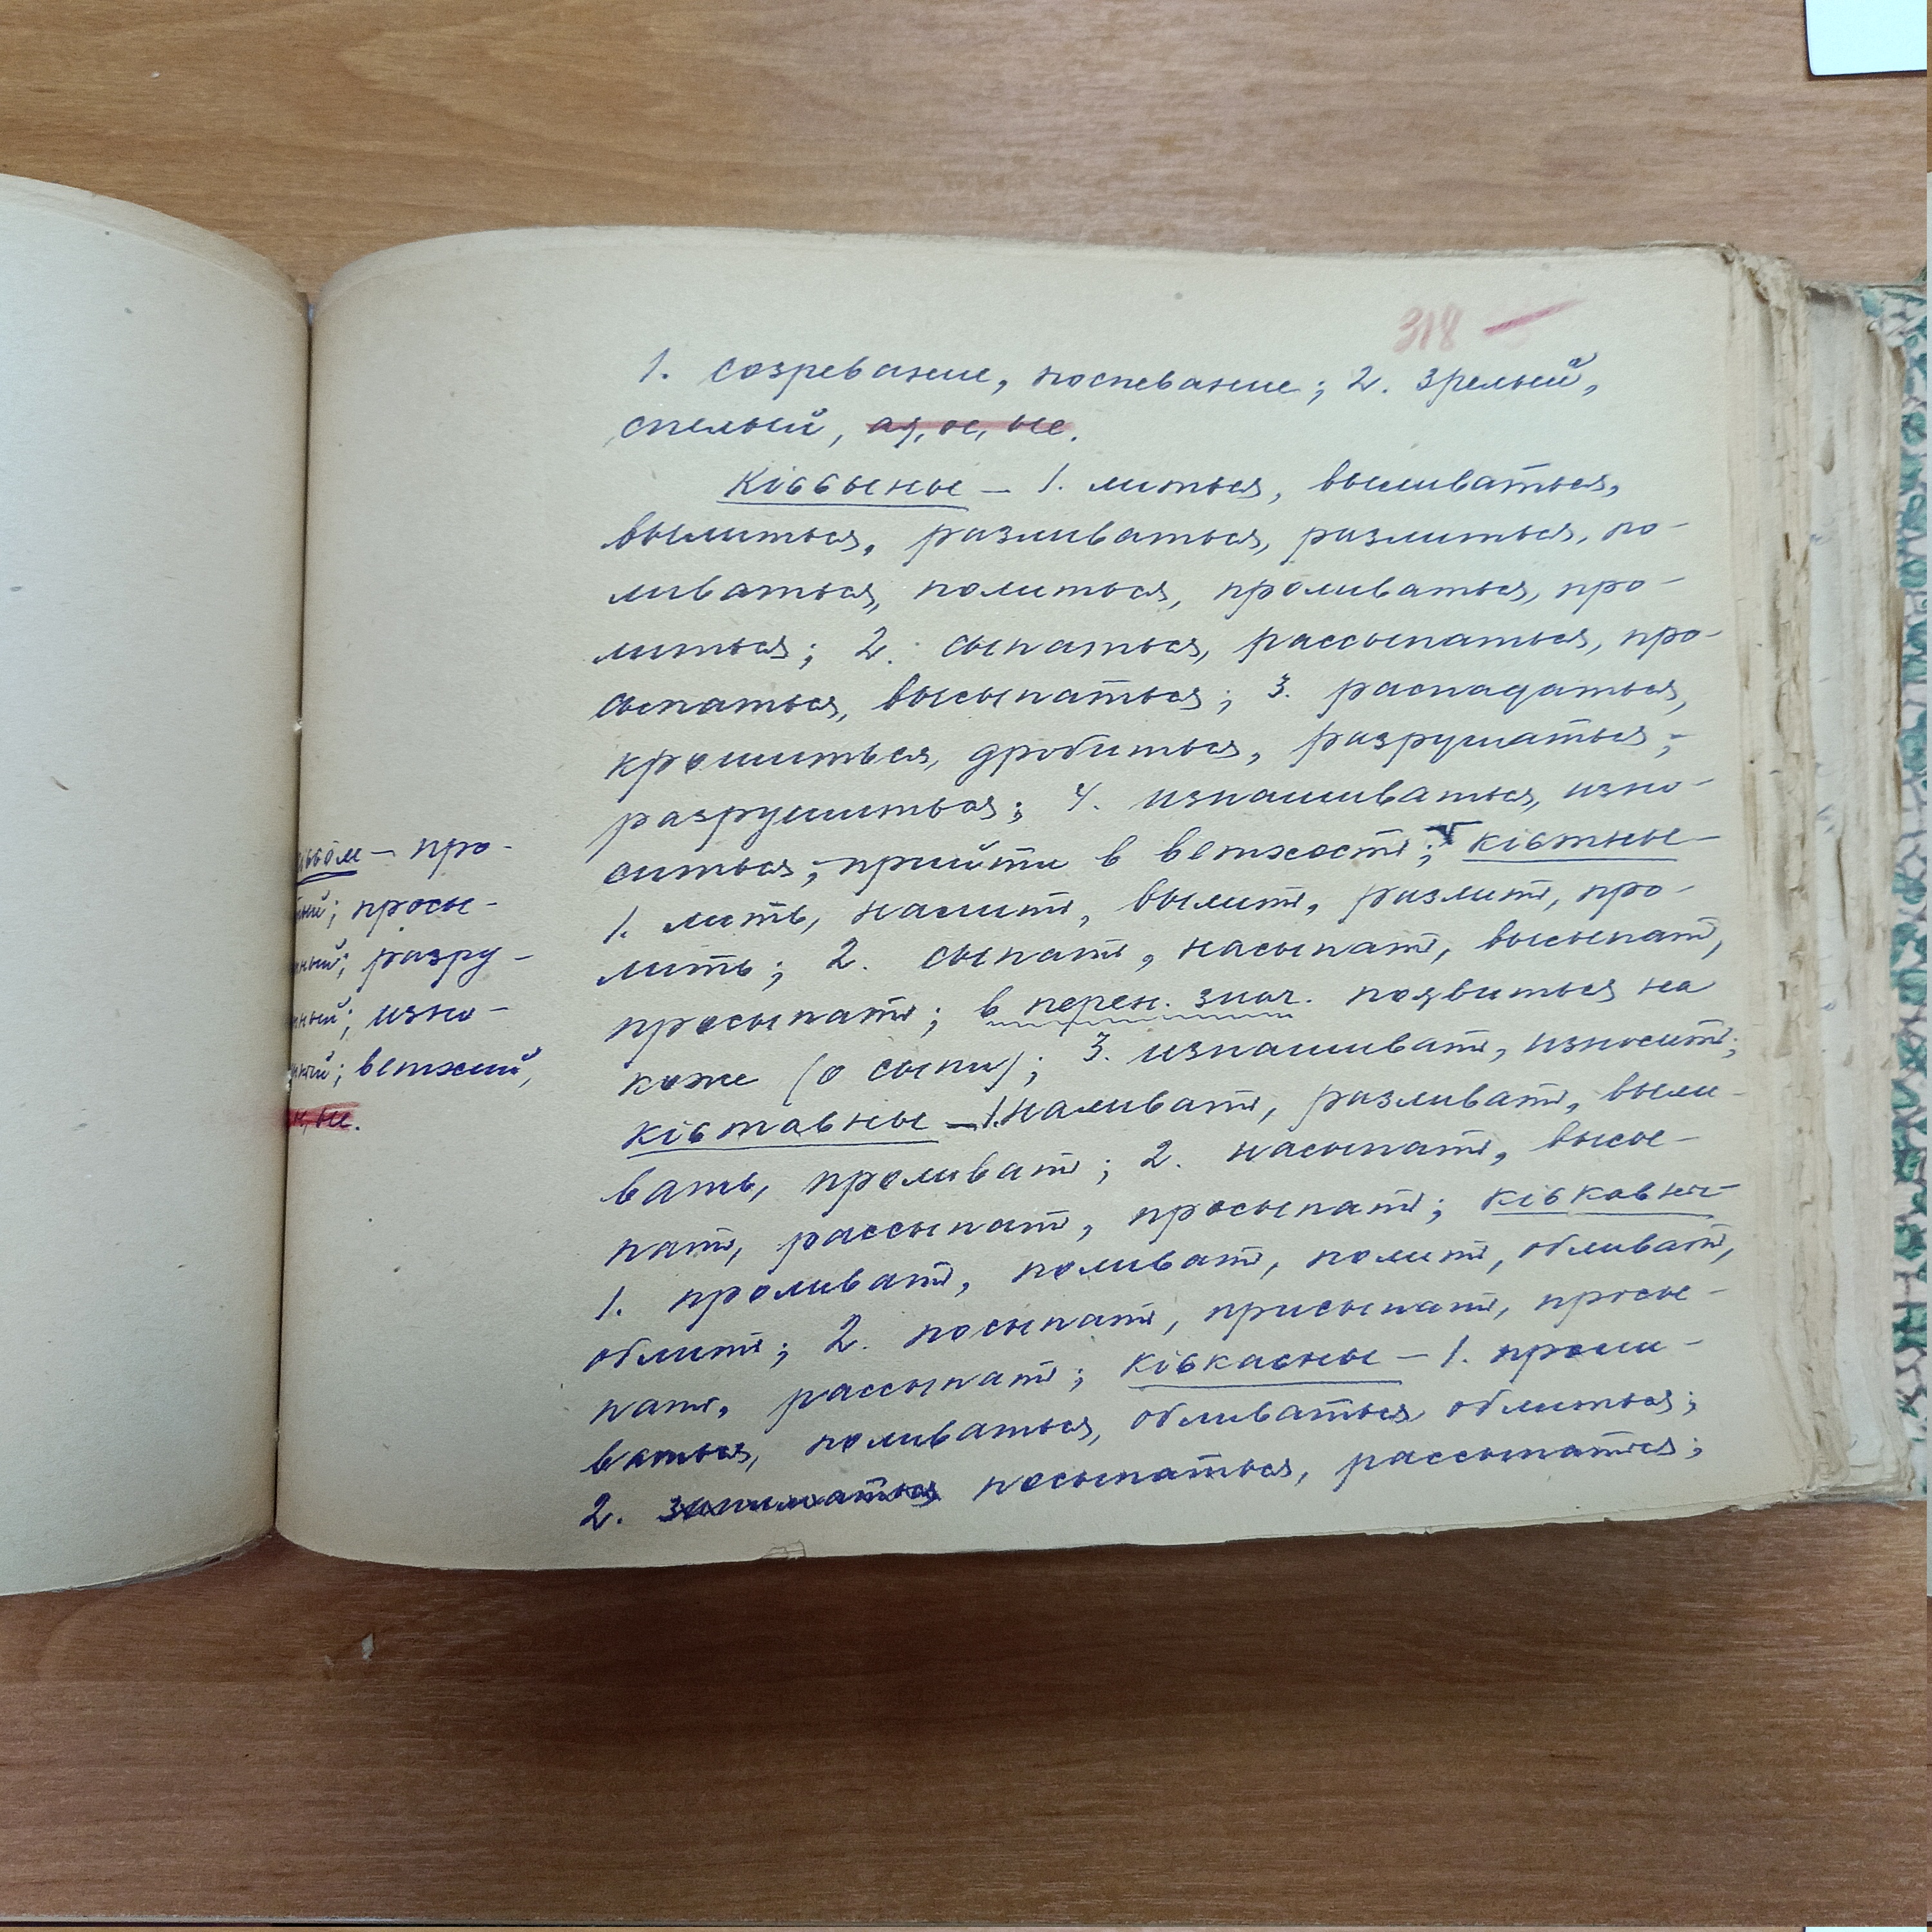 318 —
1. созревание, поспевание; 2. зрелый,
спелый, ая, ое, ые.
Кісьсьыны — 1. литься, выливаться,
вылиться, разливаться, разлиться, по-
ливаться, политься, проливаться, про-
литься; 2. сыпаться, рассыпаться, про-
сыпаться, высыпаться; 3. распадаться,
крошиться, дробиться, разрушаться,
разрушиться; 4. изнашиваться, изно-
ситься, прийти в ветхость; кісьтны –
1. лить, налить, вылить, разлить, про-
лить; 2. сыпать, насыпать, высыпать,
просыпать; в перен. знач. появиться на
коже (о сыпи); 3. изнашивать, износить;
кісьтавны — 1. наливать, разливать, выли-
вать, проливать; 2. насыпать, высы-
пать, рассыпать, просыпать; кіськавны –
1. проливать, поливать, полить, обливать,
облить; 2. посыпать, присыпать, просы-
пать, рассыпать; кіськасьны — 1. проли-
ваться, поливаться, обливаться, облиться;
2. посыпаться, рассыпаться;
— про-
тый; просы-
нный; разру-
нный; изно-
нный; ветхий,
ые.